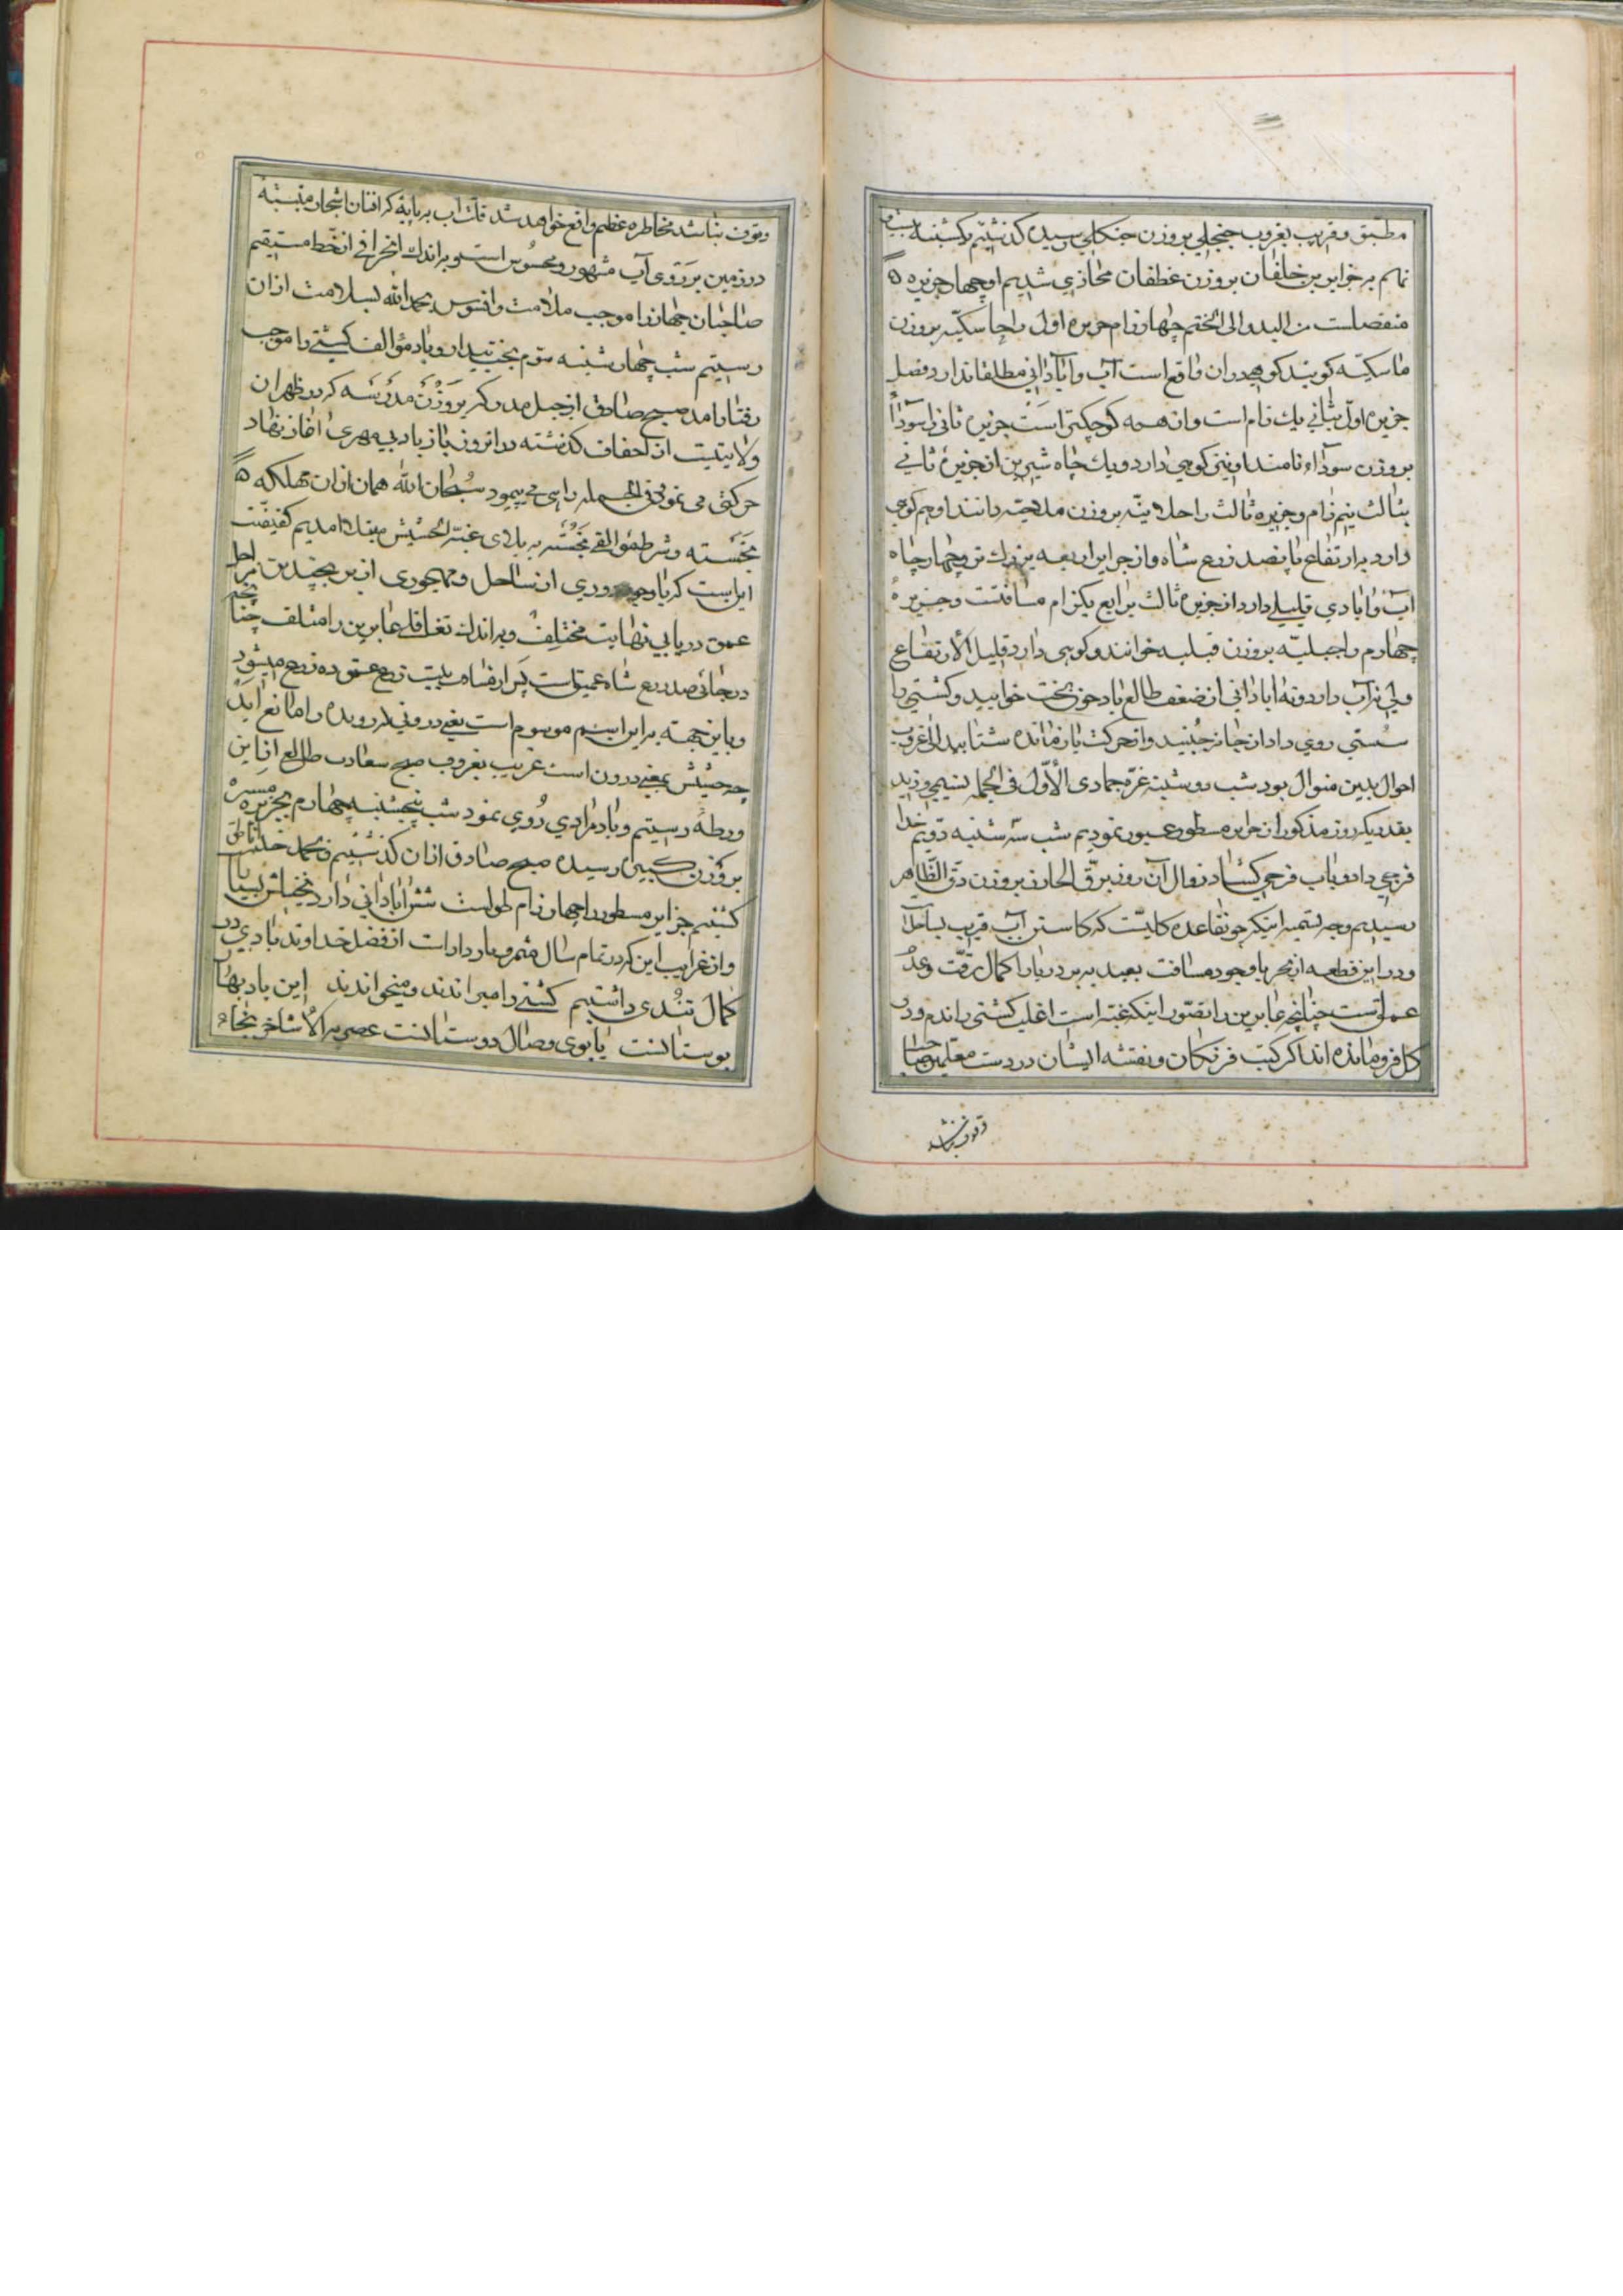 مطبق و قریب بغروب جنجلی بروزن جنکلی رسیده کذشتیم یکشنبه بیست
نهم بر جزایر بن خلفان بروزن غطفان محاذی شدیم او چهار جزیره ه
منفصلست من البدو الی الختم چهار زام جزیره اول را حاسکیه بروزن
ماسکیه کویند کوهی در ان واقع است آب و آبادانی مطلقا ندارد فصل
جزیره اول بثانی یک زام است و ان همه کوچکتر است جزیره ثانی را سوداً
بروزن سوداء نامند او نیز کوهی دارد و یک چاه شیرین از جزیرهٔ ثانی
بثالث نیم زام و جزیره ثالث را حلانیه بروزن ملاحیه دانند او هم کوهی
دارد بارتفاع پانصد ذرع شاه و از جزایر اربعه بزرک تر و چهار چاه
آب و ابادی قلیلی دارد از جزیره ثالث برابع یکزام مسافتست و جزیرهٔ
چهارم را جبلیه بروزن قبلیه خوانند و کوهی دارد قلیل الارتفاع
ولی نه آب دارد و نه ابادانی از ضعف طالع باد چون بخت خوابید و کشتی با
سستی روی داد از جا نجنبید و از حرکت باز مانده شتابید الی غروب
احوال بدین منوال بود شب دوشنبه غره جمادی الأوّل فی الجمله نسیمی وزید
بقدر یکروز مذکور از جزایر مسطور عبور نمودیم شب سه شنبه دویم خدا
فرجی داد و باب فرحی کشاد زوال آن روز برق الحارز بروزن دق الظاهر
رسیدیم وجه تسمیه اینکه چو بقاعده کلیست که کاستن آب قریب بساحل
و در این قطعه از بحر باوجود مسافت بعید ببر دریا را کمال رقت و عدم
عمق است چنانچه عابرین را بتصور اینکه غبه است اغلب کشتی رانده و در
کل فرو مانده اند اکر کتب فرنکان و نقشه ایشان در دست معلمین صاحب
وقوف نباشد
وقوف نباشد مخاطره عظیم واقع خواهد شد قلت آب بر پایهٔ که افنان اشجار منبسته
در زمین بر روی آب مشهور و محسوس است و براندک انحرافی از خط مستقیم
صاحبان جهاز را موجب ملامت و افسوس بحمدالله بسلامت ازان
رسیتیم شب چهارشنبه سوّم بخت بیدار و باد مؤالف کشتی را موجب
رفتار امد صبح صادق از جبل مدرکه بروزن مدرسه که در ظهران
ولایتیست از احقاف کذشته در انروز باز باد بی مهری اغاز نهاد
حرکتی می نمود فی الجمله راهی می پیمود سبحان الله همان از ان مهلکه ه
نجسته و شرطمؤالفی نجسته به بالای غبة الحشیش مبتلا امدیم کیفیت
این است که باوجود دوری از ساحل و مهجوری از بر بچندین مراحل
عمق دریا بی نهایت مختلف و براندک تغافلی عابرین را متلف چنانچه
در جائی صد ذرع شاه عمیق است پس از مسافه بیست ذرع عمق ده ذرع میشود
و باین جهته بر این اسم موسوم است یعنی درونی در رونده را مانع آید
چه حشیش بمعنی درون است غریب بغروب صبح سعادت طالع از این
ورطه رستیم و باد مرادی روی نمود شب پنجشنبه چهارم بجزیره مسیره
بروزن کبیره رسیده صبح صادق ازان کذشتیم و بحمد خدا ناطق
کشتیم جزایر مسطور را چهار زام طولست شش ابادانی دارد نخیلش بسیار
و از غرایب این که در تمام سال مثمر و بار داراست از فضل خداوند بادی در
کمال تندی داشتیم کشتی را میراندند و میخواندند این باد بهار
بوستانست یا بوی وصال دوستانست عصر براس الاشاخر بنجاه